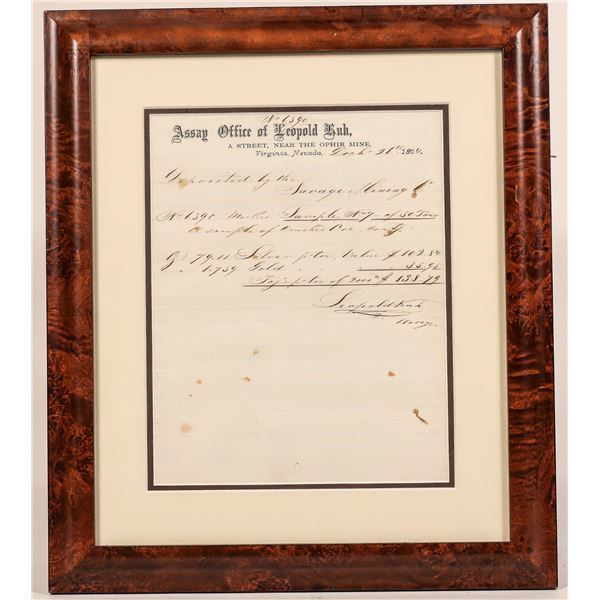 No 6390
Assay Office of Leopold Kuh,
A STREET, NEAR THE OPHIR MINE,
Virginia, Nevada, Decbr 21st 1864.
Deposited by the
Savage Mining Co
No 6390 Marked Sample No 7 of 50 Tons
A sample of Ore,
79.11 Silver p ton, Value $ 102.84
1.739 Gold " " 35.95
p ton of 2000 $ 138.79
Leopold Kuh
Assayer